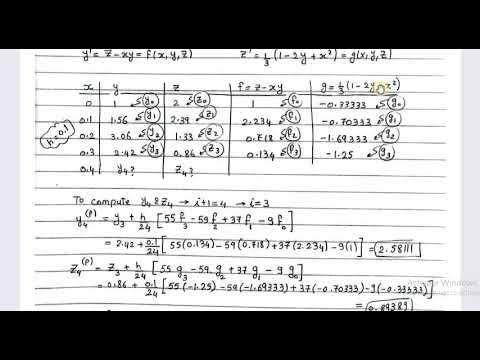 y' = z - xy = f(x, y, z) z' = 1/3 (1 - 2y + x²) = g(x, y, z)
x y z f = z - xy g = 1/3 (1 - 2y + x²)
0 1 y₀ 2 z₀ 1 f₀ -0.33333 g₀
0.1 1.56 y₁ 2.39 z₁ 2.234 f₁ -0.70333 g₁
h = 0.1
0.2 3.06 y₂ 1.33 z₂ 0.718 f₂ -1.69333 g₂
0.3 2.42 y₃ 0.86 z₃ 0.134 f₃ -1.25 g₃
0.4 y₄? z₄?
To compute y₄ & z₄ → i+1=4 → i=3
y₄⁽ᵖ⁾ = y₃ + h/24 [55 f₃ - 59 f₂ + 37 f₁ - 9 f₀]
= 2.42 + 0.1/24 [55(0.134) - 59(0.718) + 37(2.234) - 9(1)] = 2.58111
z₄⁽ᵖ⁾ = z₃ + h/24 [55 g₃ - 59 g₂ + 37 g₁ - 9 g₀]
= 0.86 + 0.1/24 [55(-1.25) - 59(-1.69333) + 37(-0.70333) - 9(-0.33333)]
= 0.89389
Activate Windows